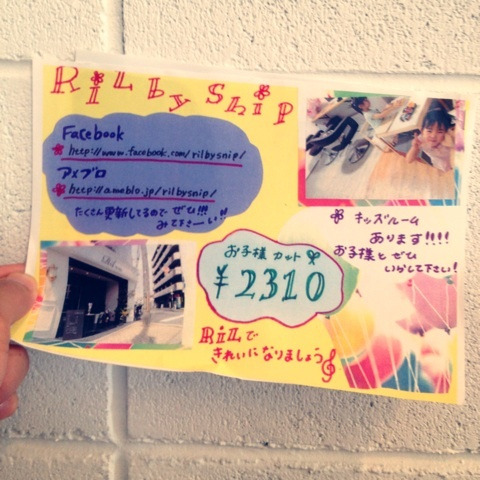 RiLby Snip
Facebook
http://www.facebook.com/rilbysnip/
アメブロ
http://ameblo.jp/rilbysnip/
たくさん更新してるので ぜひ!!!
みて下さーい!!
キッズルーム
あります!!!!
お子様と ぜひ
いらして下さい!
お子様 カット
¥2310
RiLで
きれいになりましょう